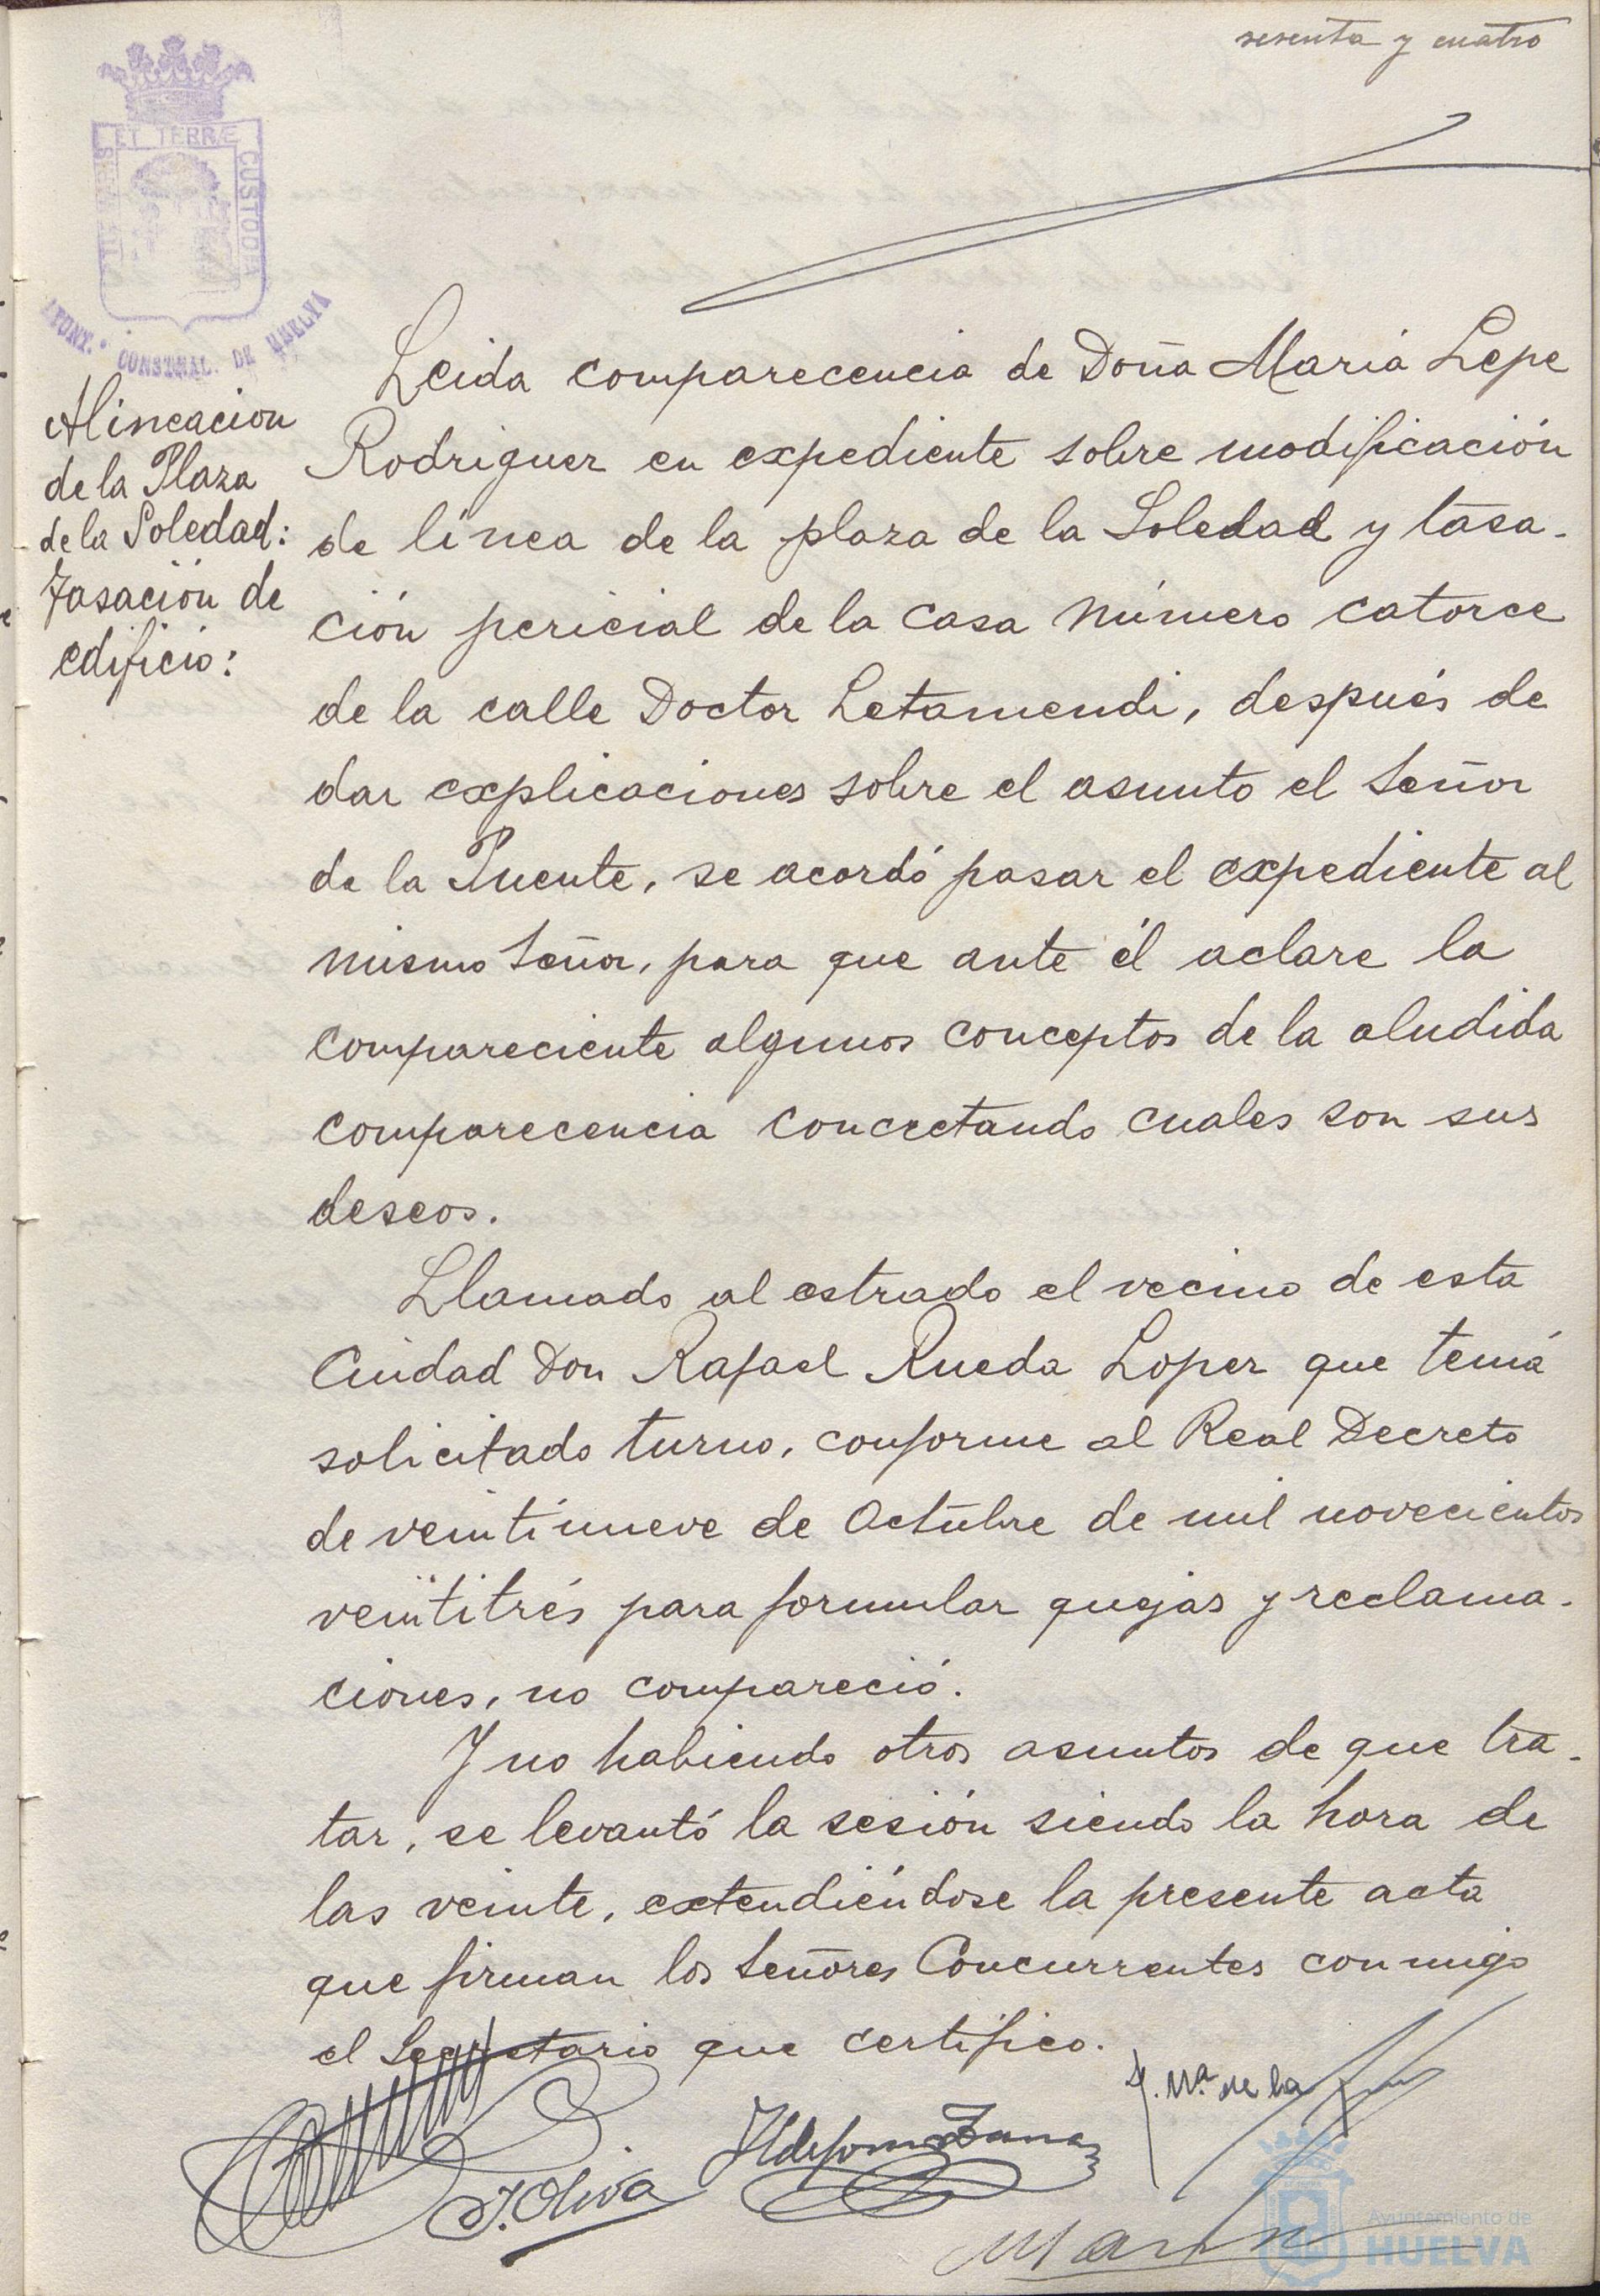 sesenta y cuatro
ET TERRÆ
CUSTODIA
AYUNT.º CONSTNAL. DE HUELVA
Alineacion
de la Plaza
de la Soledad:
Tasación de
edificio:
Leida comparecencia de Doña Maria Lepe
Rodriguez en expediente sobre modificación
de línea de la plaza de la Soledad y tasa-
ción pericial de la casa número catorce
de la calle Doctor Letamendi, después de
dar explicaciones sobre el asunto el Señor
de la Puente, se acordó pasar el expediente al
mismo Señor, para que ante él aclare la
compareciente algunos conceptos de la aludida
comparecencia concretando cuales son sus
deseos.
Llamado al estrado el vecino de esta
Ciudad Don Rafael Rueda Lopez que tenía
solicitado turno, conforme al Real Decreto
de veintinueve de Octubre de mil novecientos
veintitrés para formular quejas y reclama-
ciones, no compareció.
Y no habiendo otros asuntos de que tra-
tar, se levantó la sesión siendo la hora de
las veinte, extendiéndose la presente acta
que firman los Señores Concurrentes conmigo
el Secretario que certifico.
Mª de la
J. Oliva
Ayuntamiento de
HUELVA